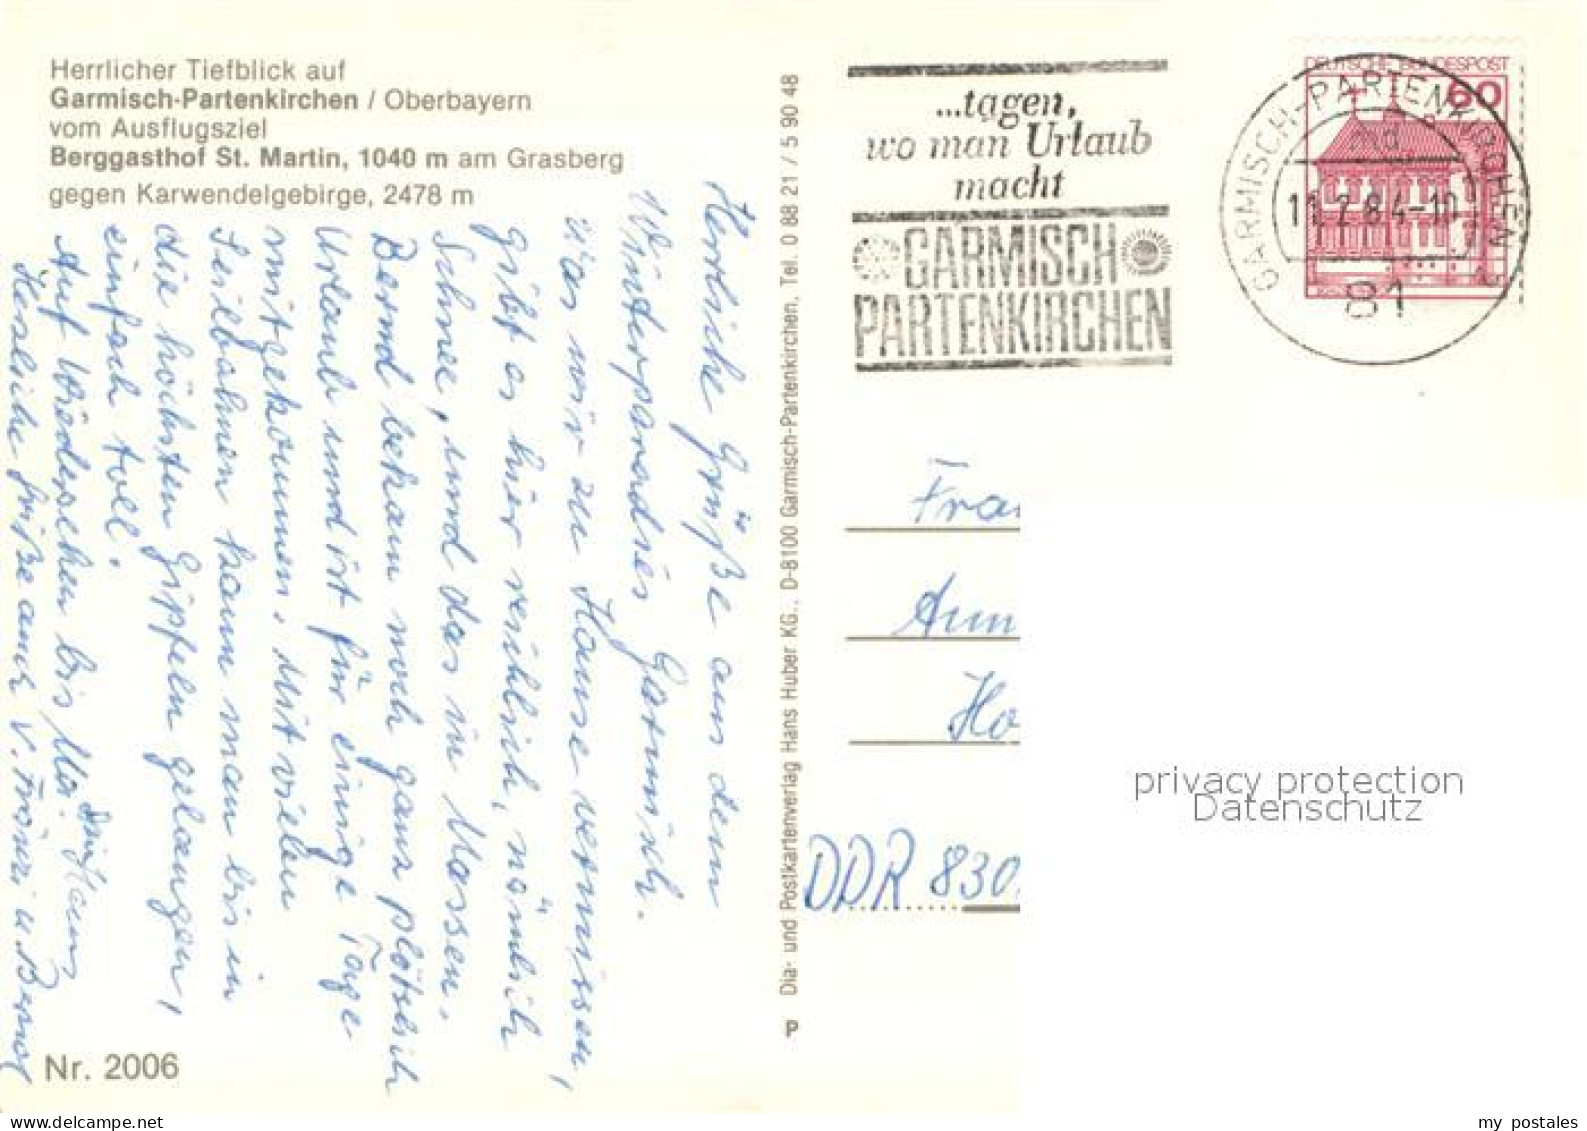 Herrlicher Tiefblick auf
Garmisch-Partenkirchen / Oberbayern
vom Ausflugsziel
Berggasthof St. Martin, 1040 m am Grasberg
gegen Karwendelgebirge, 2478 m
Herzliche Grüße aus dem
Winterparadies Garmisch.
Was wir zu Hause vermissen,
gibt es hier reichlich, nämlich
Schnee, und das in Massen.
Bernd bekam noch ganz plötzlich
Urlaub und ist für einige Tage
mitgekommen. Mit vielen
Seilbahnen kann man bis in
die höchsten Gipfeln gelangen,
einfach toll.
Auf Wiedersehen bis Mai.
Herzliche Grüße auch v. Franzi u Bernd
Nr. 2006
Dia- und Postkartenverlag Hans Huber KG., D-8100 Garmisch-Partenkirchen, Tel. 0 88 21 / 5 90 48
P
...tagen,
wo man Urlaub
macht
GARMISCH
PARTENKIRCHEN
DEUTSCHE BUNDESPOST
60
GARMISCH-PARTENKIRCHEN
11.2.84-10
81
Frau
Ho
DDR 830
privacy protection
Datenschutz
my postales